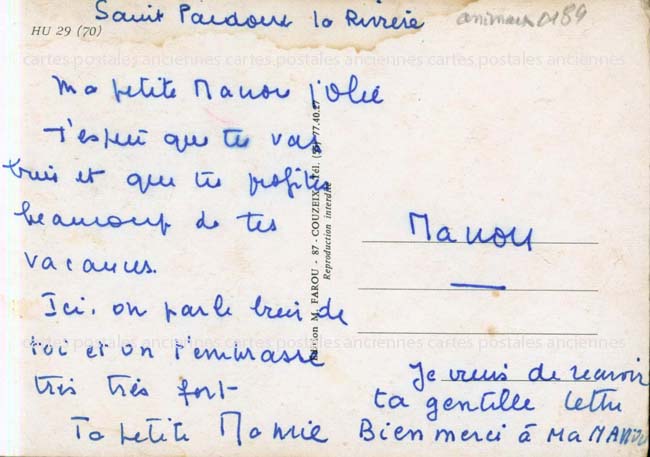 Saint Pardoux la Rivière
animaux 0184
HU 29 (70)
cartes postales anciennes cartes postales anciennes cartes postales anciennes
Ma petite Manou jolie
J'espère que tu vas
bien et que tu profites
beaucoup de tes
vacances.
Ici, on parle bien de
toi et on t'embrasse
très très fort
Ta petite Mamie
Edition M. FAROU - 87 - COUZEIX - Tél. (55) 77.40.27
Reproduction interdite
Manou
Je viens de recevoir
ta gentille lettre
Bien merci à Ma MANOU